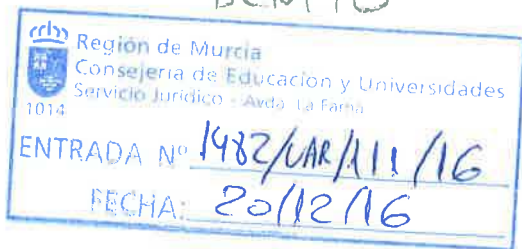 Región de Murcia
Consejería de Educación y Universidades
Servicio Jurídico - Avda. La Fama
1014
ENTRADA Nº 1482/VAR/111/16
FECHA: 20/12/16